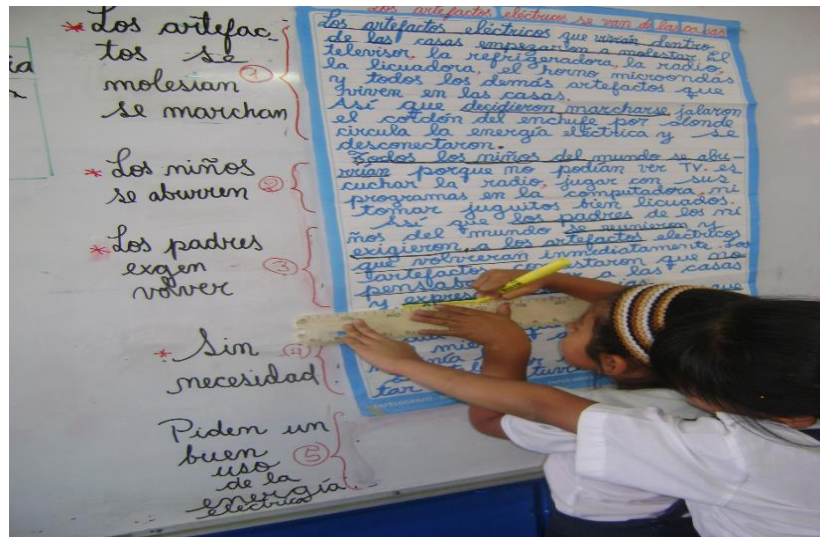 * Los artefac-
tos se
molestan
se marchan
1
* Los niños
se aburren
2
* Los padres
exgen
volver
3
* Sin
necesidad
4
Piden un
buen
uso
de la
energía
eléctrica
5
Los artefactos eléctricos se van de las casas
Los artefactos eléctricos que vivían dentro
de las casas empezaron a molestar. El
televisor, la refrigeradora, la radio,
la licuadora, el horno microondas
y todos los demás artefactos que
viven en las casas.
Así que decidieron marcharse jalaron
el cordón del enchufe por donde
circula la energía eléctrica y se
desconectaron.
Todos los niños del mundo se abu-
rrían porque no podían ver TV. es
cuchar la radio, jugar con sus
programas en la computadora, ni
tomar juguitos bien licuados.
Así que los padres de los ni
ños del mundo se reunieron y
exigieron a los artefactos eléctricos
que volvieran inmediatamente. Los
artefactos contestaron que no
pensaba a las casas
y expres que